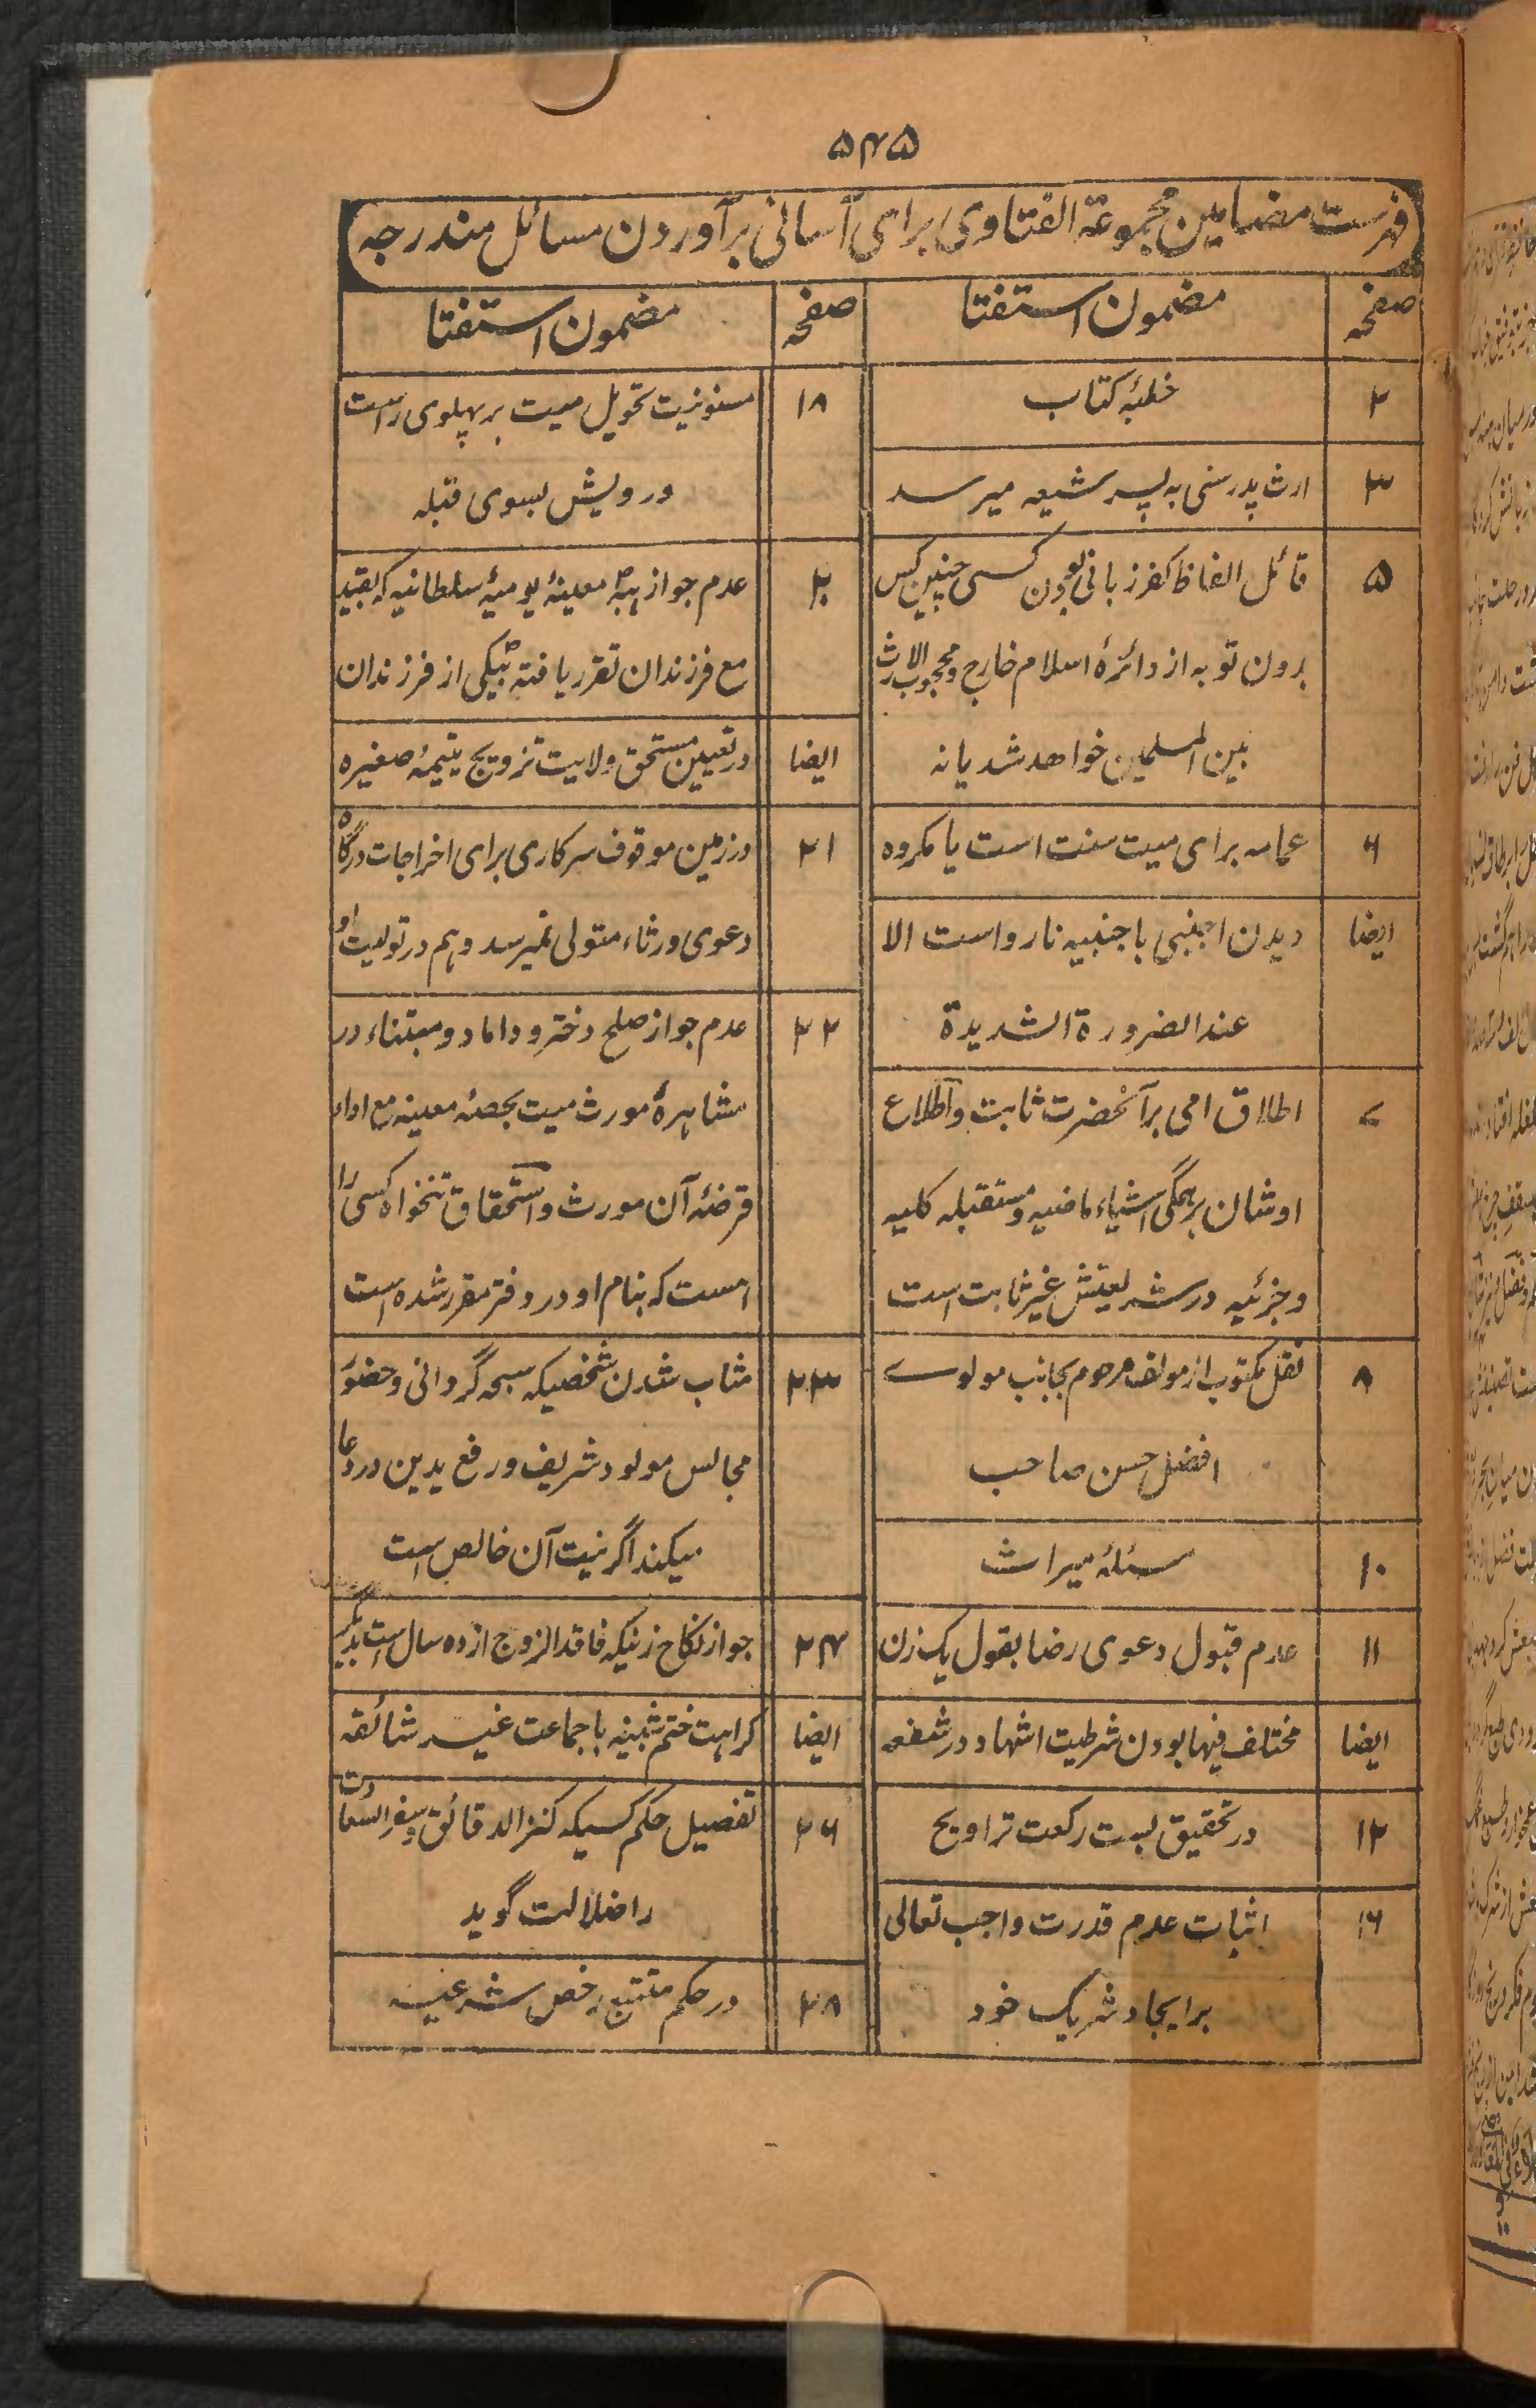 ۵۴۵
فهرست مضامین مجموعة الفتاوی برای آسانی برآوردن مسائل مندرجه
صفحه
مضمون استفتا
۲
خطبهٔ کتاب
۳
ارث پدر سنی به پسر شیعه میرسد
۵
قائل الفاظ کفر زبانی بودن کسی چنین کس
بدون توبه از دائرهٔ اسلام خارج و محجوب الارث
بین المسلمین خواهد شد یا نه
۶
عمامه برای میت سنت است یا مکروه
ایضا
دیدن اجنبی با جنبیه نارواست الا
عند الضرورة الشدیدة
۷
اطلاق امی بر آنحضرت ثابت و اطلاع
اوشان بر همگی اشیاء ماضیه و مستقبله کلیه
و جزئیه در شریعتش غیر ثابت است
۸
نقل مکتوب از مولف مرحوم بجانب مولوے
افضل حسن صاحب
۱۰
مسئلهٔ میراث
۱۱
عدم قبول دعوی رضا بقول یک زن
ایضا
مختلف فیها بودن شرطیت اشهاد در شفعه
۱۲
در تحقیق بست رکعت تراویح
۱۶
اثبات عدم قدرت واجب تعالی
بر ایجاد شریک خود
صفحه
مضمون استفتا
۱۸
مسنونیت تحویل میت بر پهلوی راست
و رویش بسوی قبله
۲۰
عدم جواز هبهٔ معینهٔ یومیهٔ سلطانیه که بقید
مع فرزندان تقرر یافته بیکی از فرزندان
ایضا
در تعیین مستحق ولایت تزویج یتیمهٔ صغیره
۲۱
در زمین موقوف سرکاری برای اخراجات درگاه
دعوی ورثاء متولی نمیرسد و هم در تولیت او
۲۲
عدم جواز صلح دختر و داماد و مبتناء در
مشاهرهٔ مورث میت بحصهٔ معینه مع اداء
قرضهٔ آن مورث و استحقاق تنخواه کسی را
است که بنام او در دفتر مقرر شده است
۲۳
مثاب شدن شخصیکه سبحه گردانی و حضور
مجالس مولود شریف و رفع یدین در دعا
میکند اگر نیت آن خالص است
۲۴
جواز نکاح زنیکه فاقد الزوج از ده سال است بدیگر
ایضا
کراهت ختم شبینه با جماعت غیر شائقه
۲۶
تفصیل حکم کسیکه کنز الدقائق و سفر السعادت
را ضلالت گوید
۲۸
در حکم متتبع رخص شرعیه